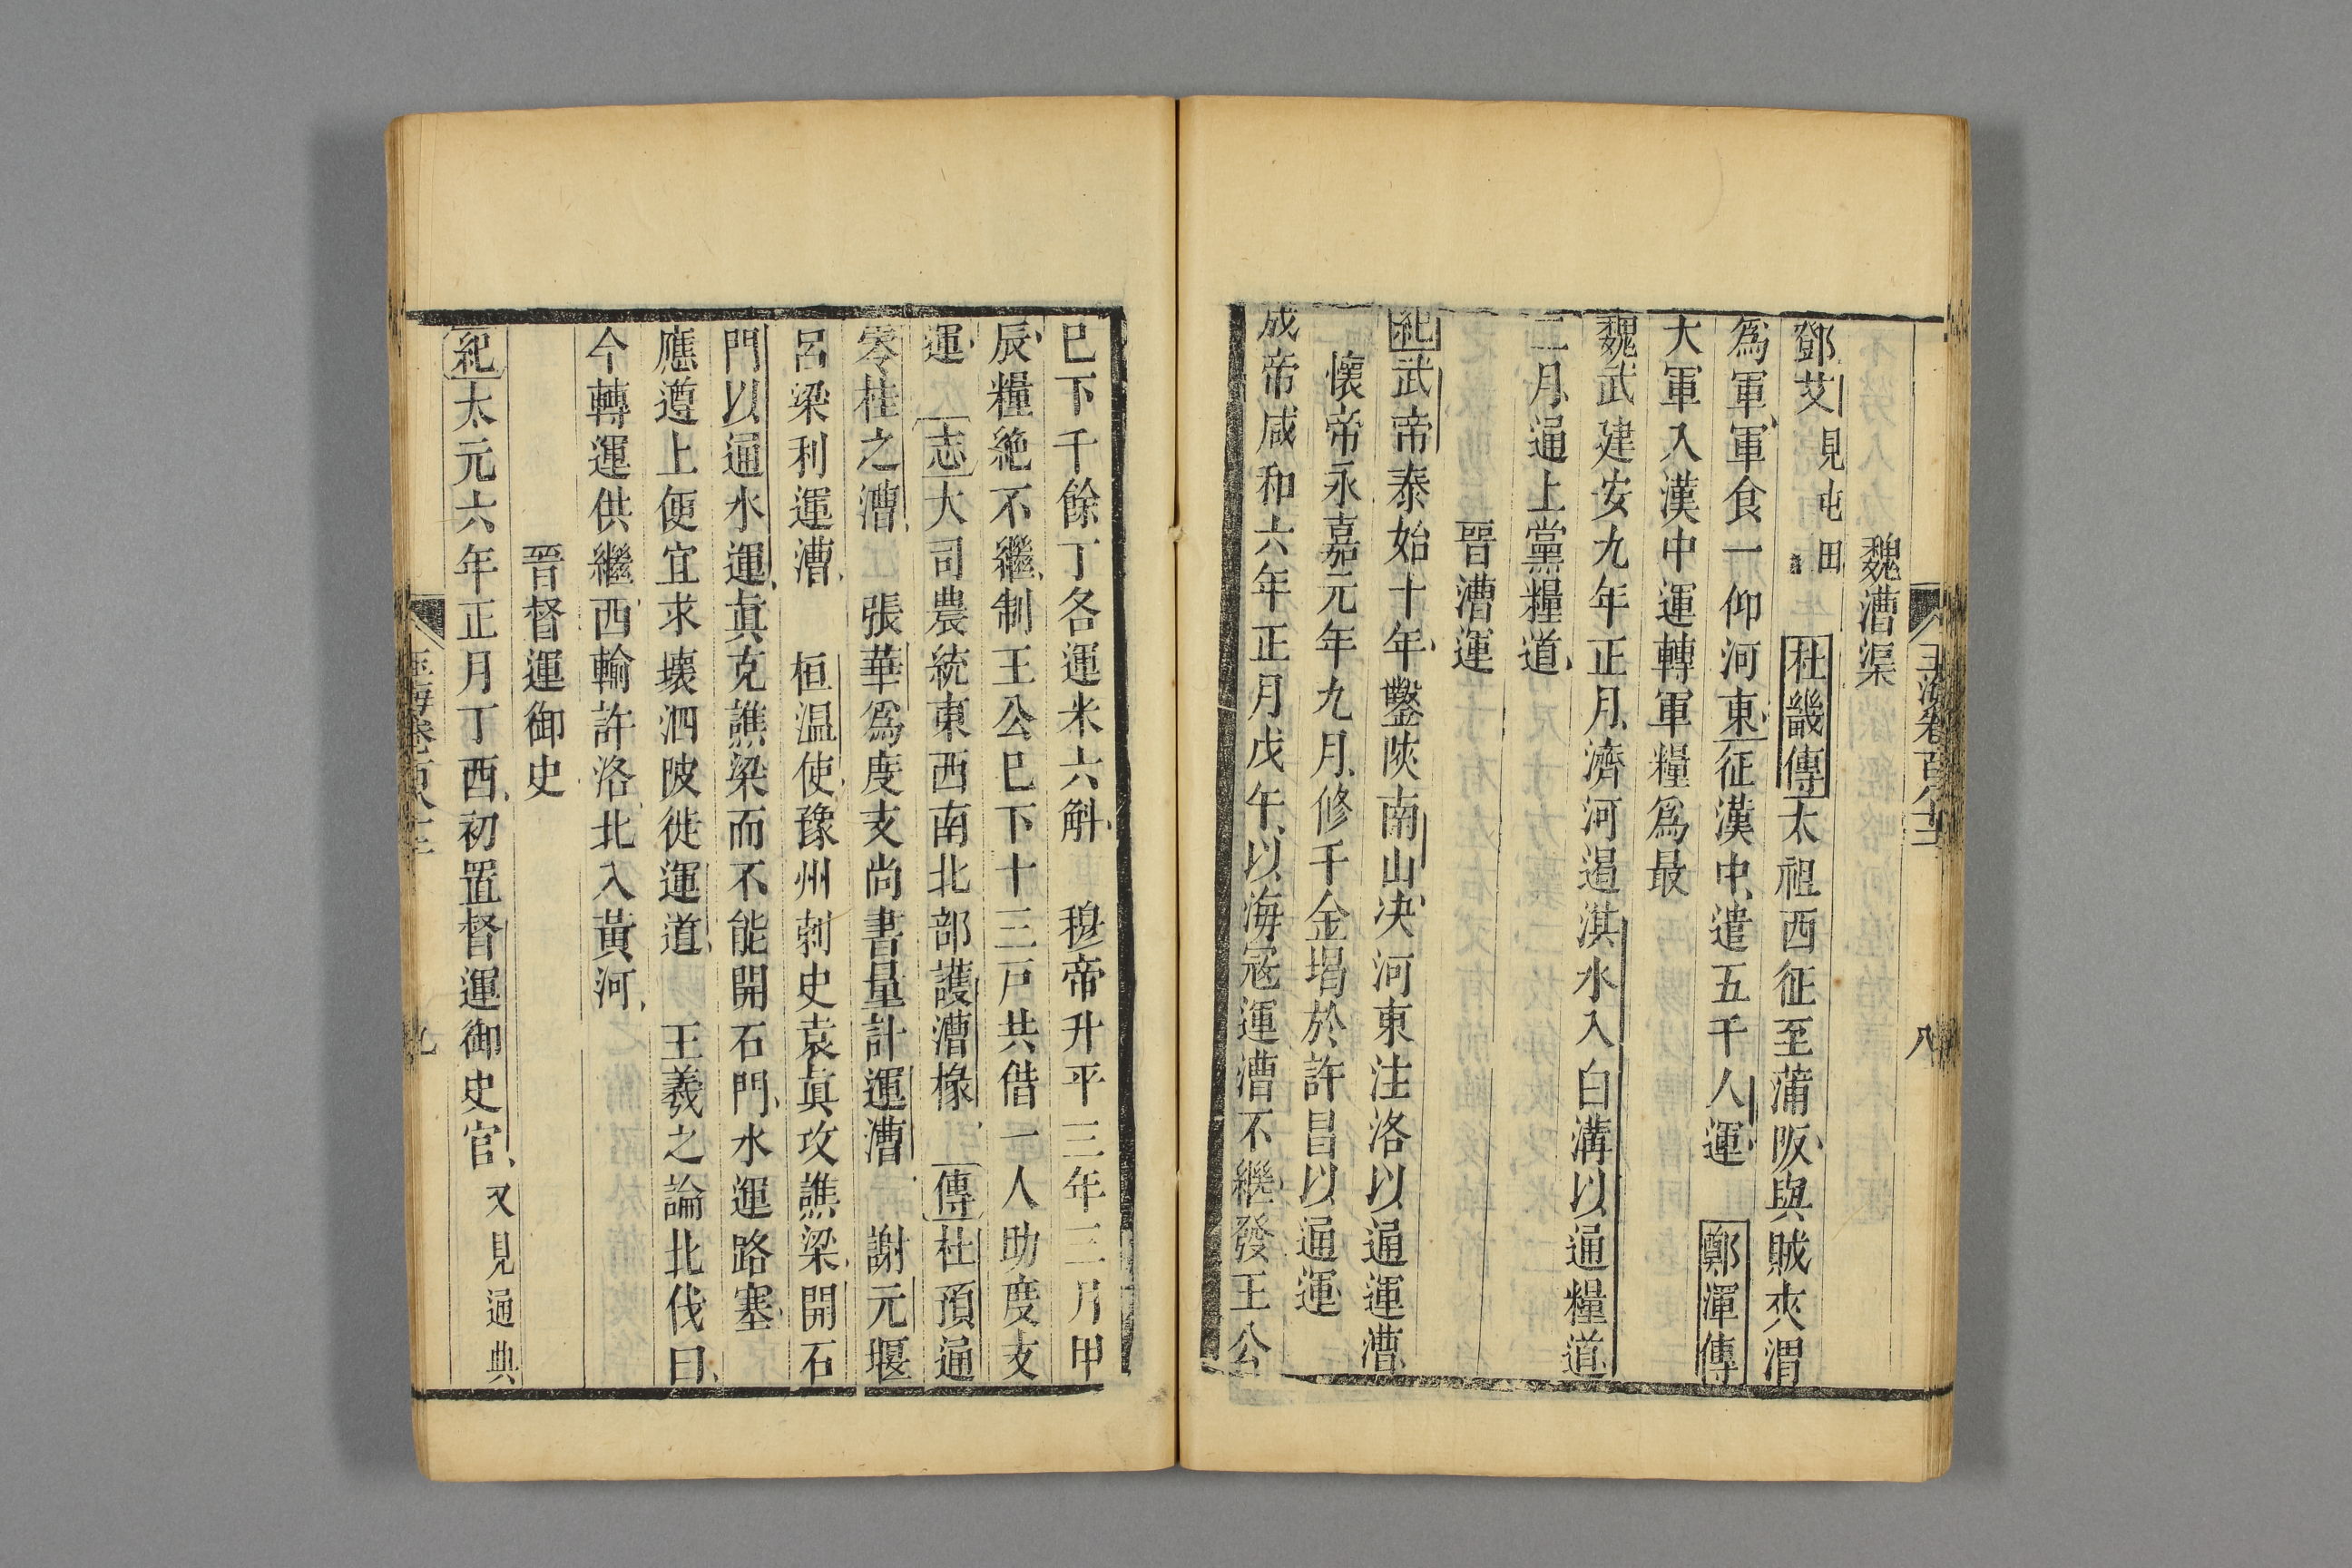 玉海卷百八十二
八
魏漕渠
鄧艾見屯田杜畿傳太祖西征至蒲阪與賊夾渭
爲軍軍食一仰河東征漢中遣五千人運鄭渾傳
大軍入漢中運轉軍糧爲最
魏武建安九年正月濟河遏淇水入白溝以通糧道
二月通上黨糧道
晉漕運
紀武帝泰始十年鑿陜南山决河東注洛以通運漕
懷帝永嘉元年九月修千金堨於許昌以通運
成帝咸和六年正月戊午以海寇運漕不繼發王公
巳下千餘丁各運米六斛穆帝升平三年三月甲
辰糧絶不繼制王公巳下十三戸共借一人助度支
運志大司農統東西南北部護漕椽傳杜預通
零桂之漕張華爲度支尚書量計運漕謝元堰
呂梁利運漕桓温使豫州刺史袁眞攻譙梁開石
門以通水運眞克譙梁而不能開石門水運路塞
應遵上便宜求壞泗陂徙運道王羲之論北伐曰
今轉運供繼西輸許洛北入黃河
晉督運御史
紀太元六年正月丁酉初置督運御史官又見通典
玉海卷百八十二
九